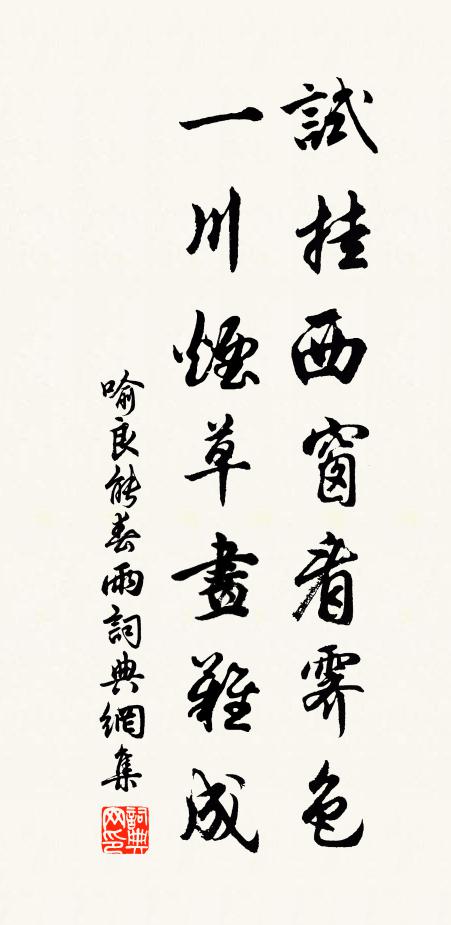 試挂西窗看霽色
一川煙草畫難成
喻良能春雨詞典網集
詞典網印